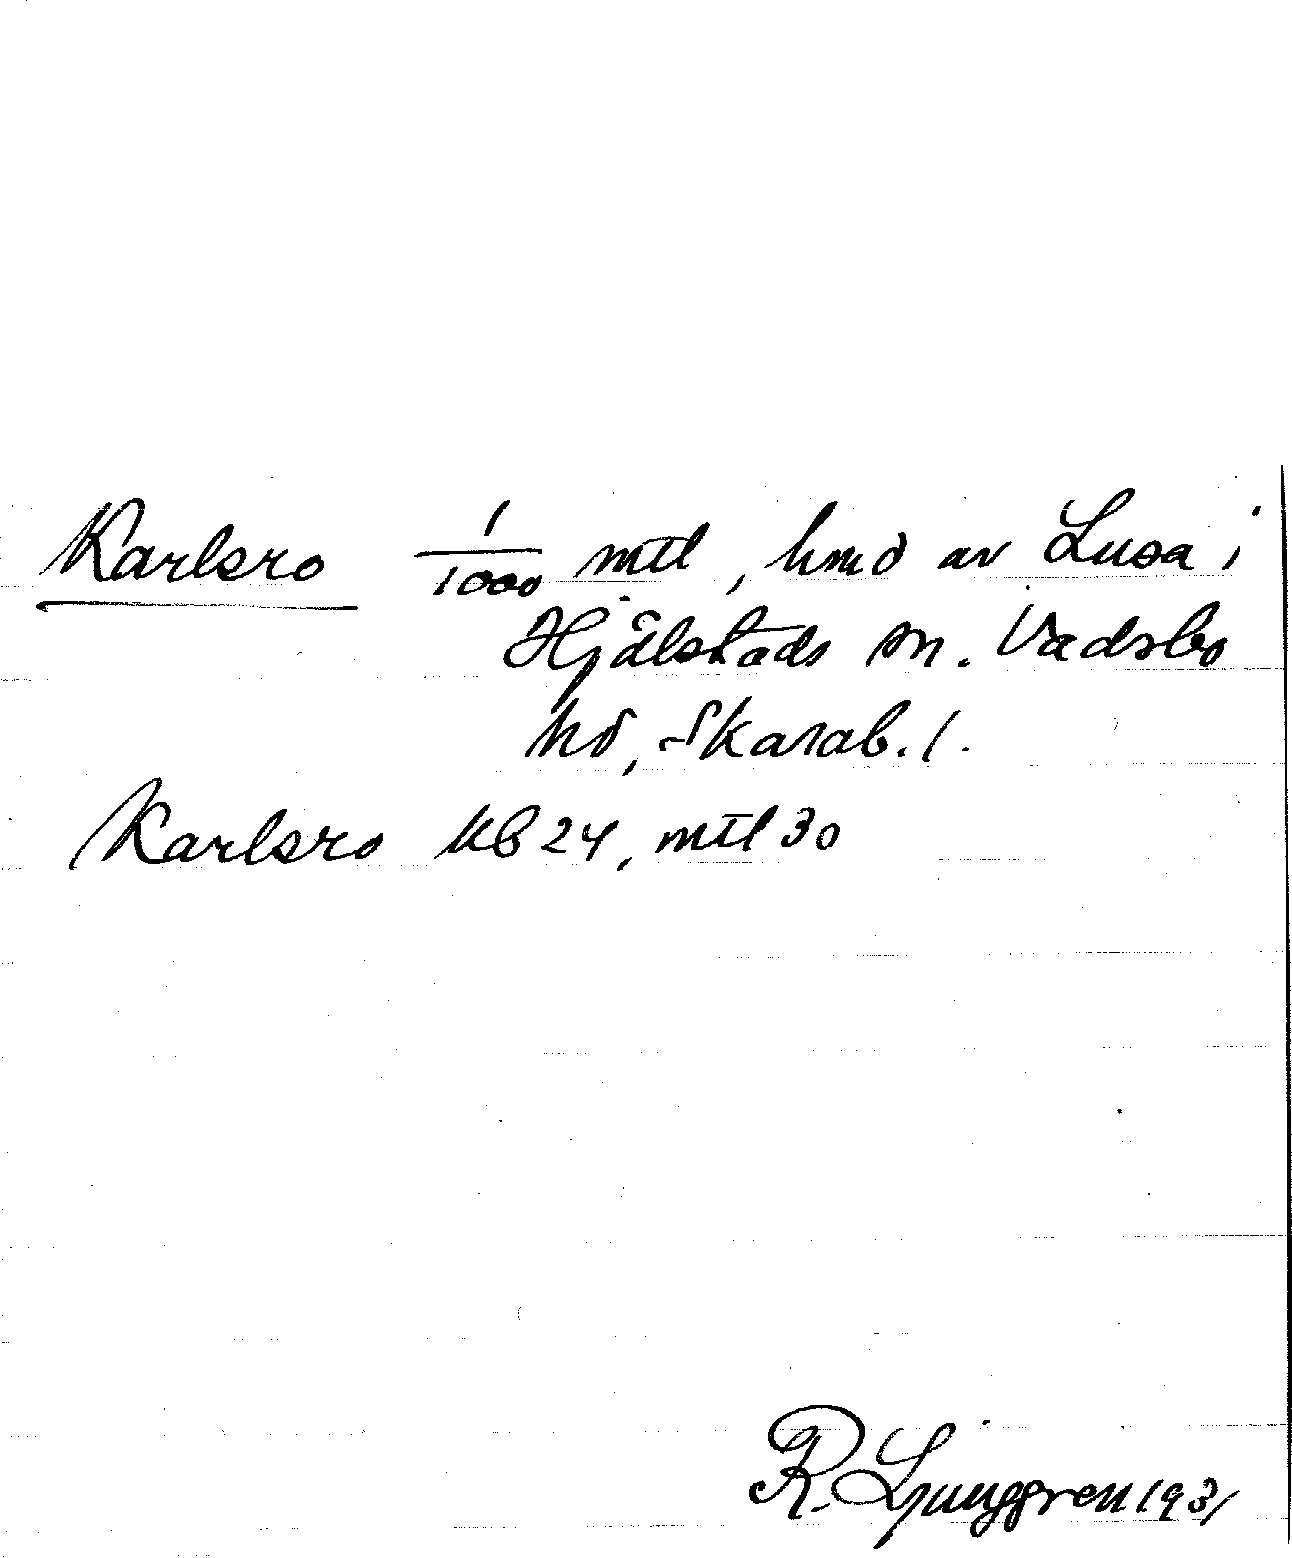 Karlsro 1/1000 mtl, hmd av Lusa i
Hjälstads sn. Vadsbo
hd, Skarab. l.
Karlsro kb 24, mtl 30
R. Ljunggren 1931